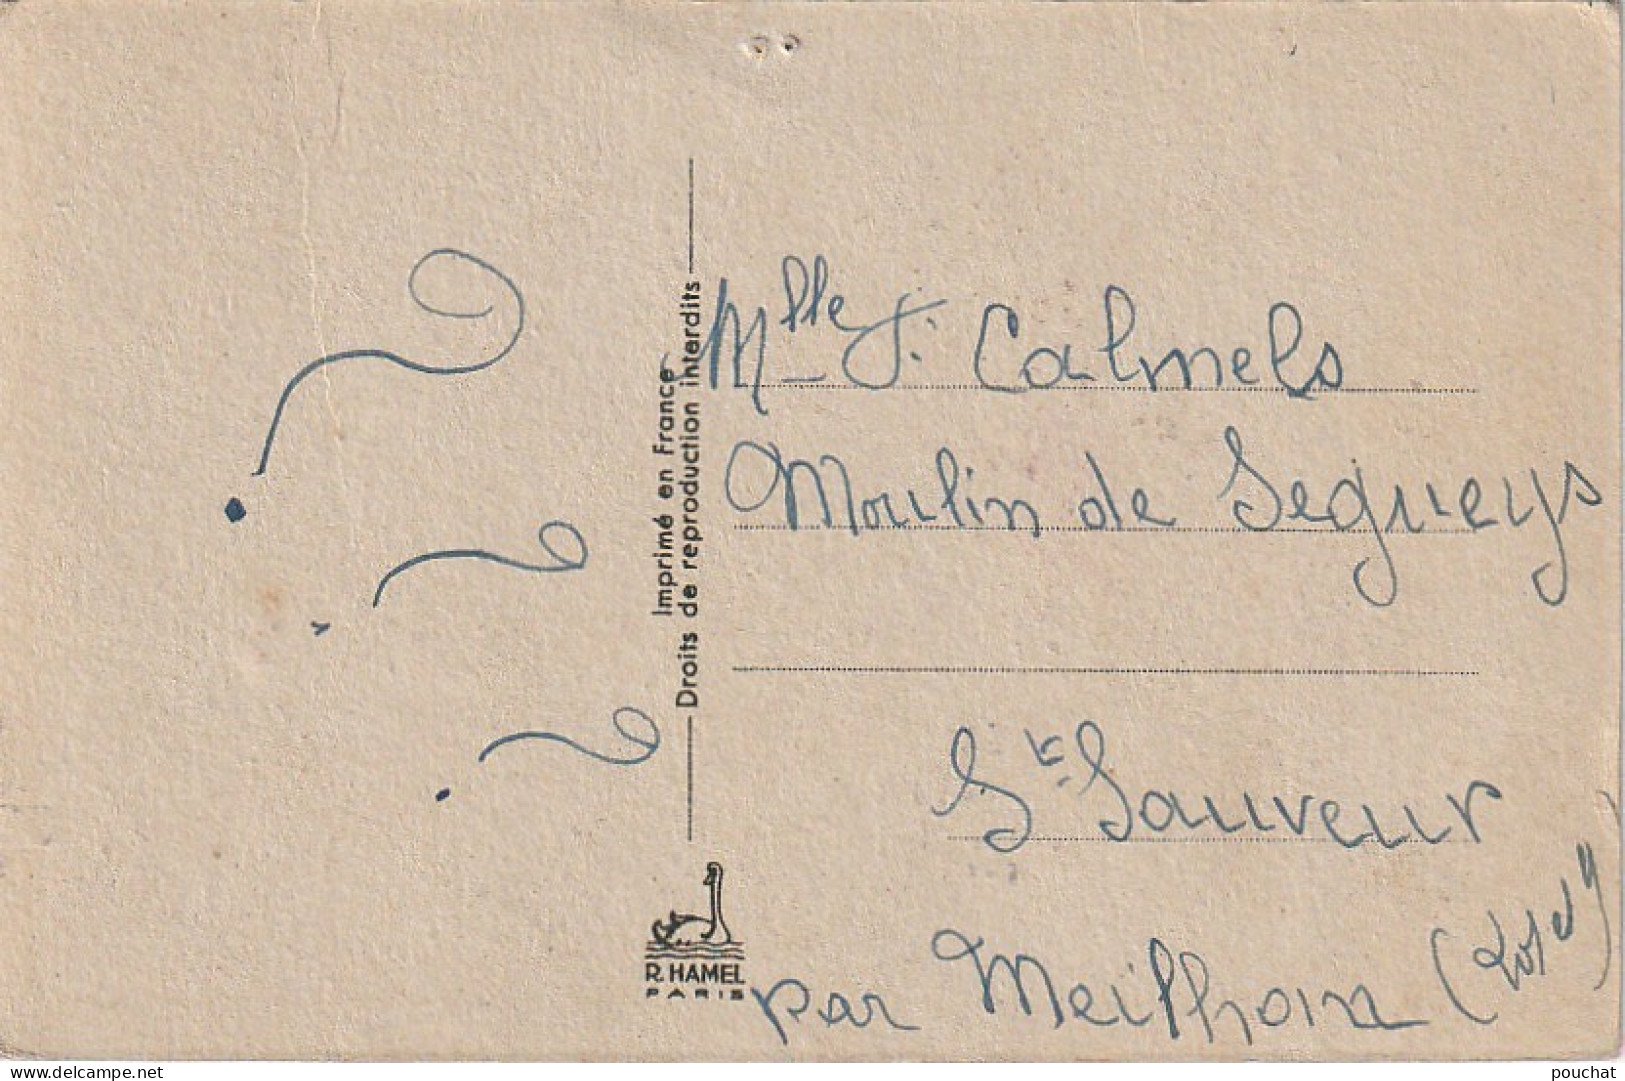 ? ? ?
Imprimé en France
Droits de reproduction interdits
R. HAMEL
PARIS
Mlle J. Calmels
Moulin de Segueys
St Sauveur
par Meilhan (Lot et
www.delcampe.net
pouchat